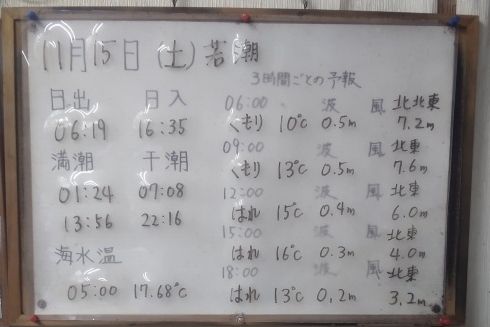 11月15日(土)若潮
3時間ごとの予報
日出 日入
06:19 16:35
満潮 干潮
01:24 07:08
13:56 22:16
海水温
05:00 17.68℃
06:00 波 風 北北東
くもり 10℃ 0.5m 7.2m
09:00 波 風 北東
くもり 13℃ 0.5m 7.6m
12:00 波 風 北東
はれ 15℃ 0.4m 6.0m
15:00 波 風 北東
はれ 16℃ 0.3m 4.0m
18:00 波 風 北東
はれ 13℃ 0.2m 3.2m